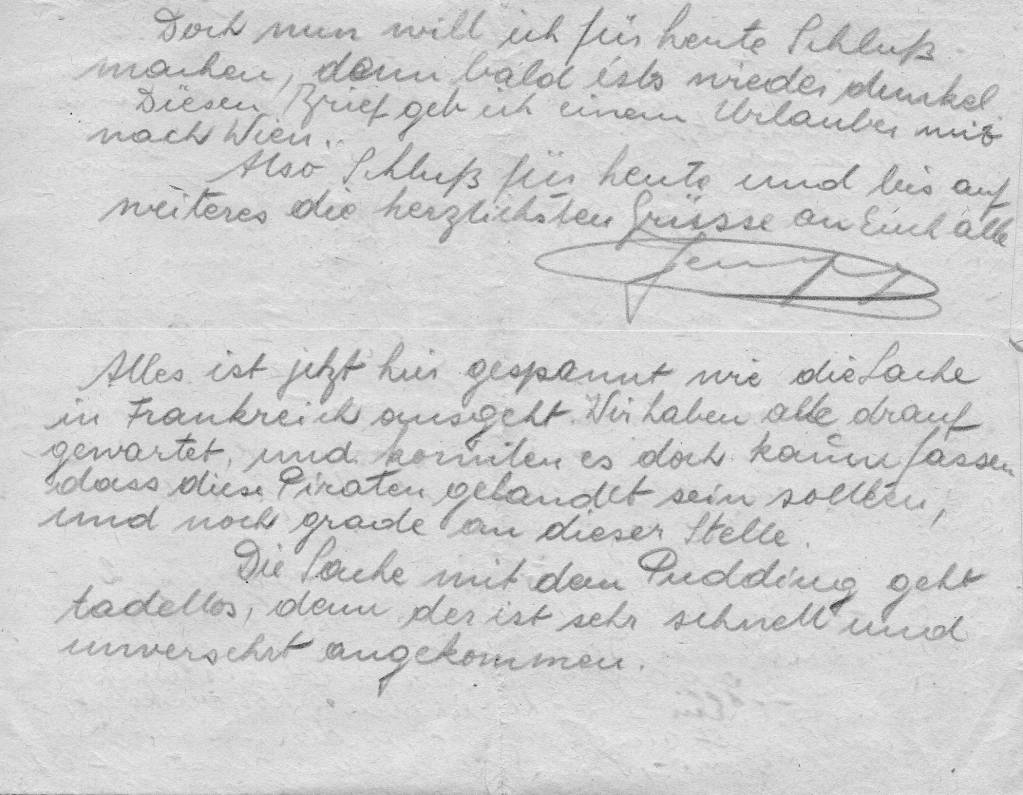 Doch nun will ich für heute Schluß
machen, denn bald ists wieder dunkel
Diesen Brief geb ich einem Urlauber mit
nach Wien..
Also Schluß für heute und bis auf
weiteres die herzlichsten Grüsse an Euch alle
Alles ist jetzt hier gespannt wie die Sache
in Frankreich ausgeht. Wir haben alle drauf
gewartet, und konnten es doch kaum fassen
dass diese Piraten gelandet sein sollten,
und noch grade an dieser Stelle.
Die Sache mit dem Pudding geht
tadellos, denn der ist sehr schnell und
unversehrt angekommen.